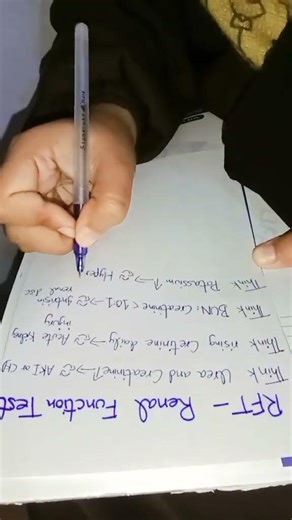 RFT - Renal Function Test
Think Urea and Creatinine↑ → AKI or CK
Think rising Cretinine daily → Acute Kidney
injury
Think BUN: Creatinine < 10:1 → intrinsic
renal
Think Potassium ↑ → Hyper